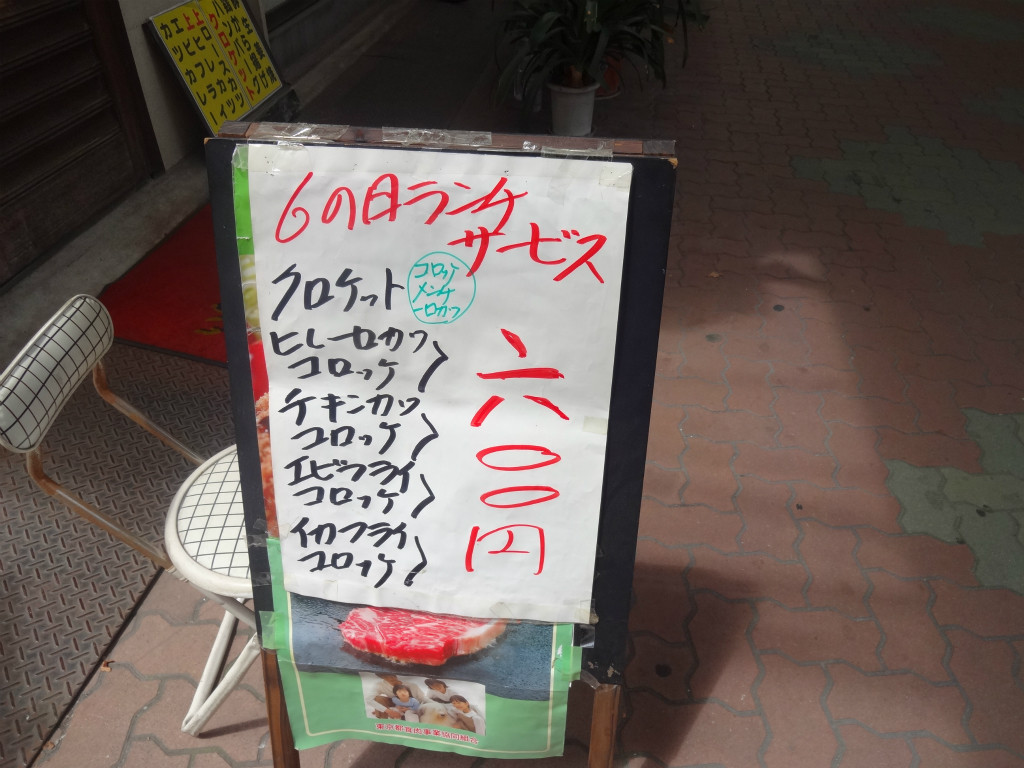 6の日ランチ
サービス
クロケット
コロッケ
メンチ
一口カツ
ヒレ一口カツ
コロッケ
チキンカツ
コロッケ
エビフライ
コロッケ
イカフライ
コロッケ
六〇〇円
東京都食肉事業協同組合